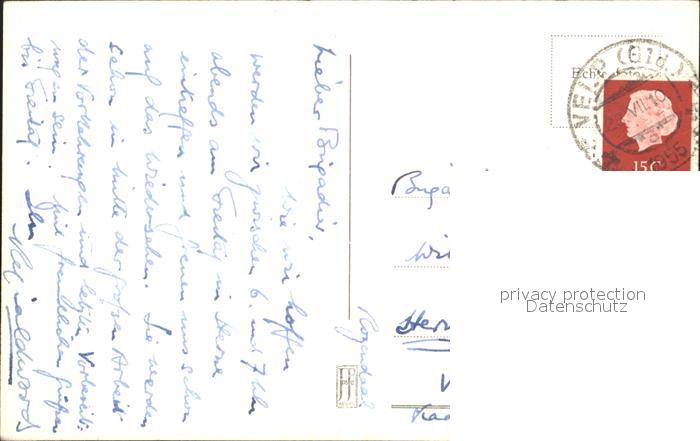 Lieber Brigadier,
Wie wir hoffen
werden wir zwischen 6. und 7 Uhr
abends am Freitag in Herne
eintreffen und freuen uns schon
auf das Wiedersehen. Sie werden
schon in mitte der großen Arbeit
der Vorkehrungen und letzten Vorbereit-
ungen sein! Mit freundlichen Grüßen
bis Freitag! Ihr
Rozendaal
Echt
VELP (Gld.)
1955
15 C
privacy protection
Datenschutz